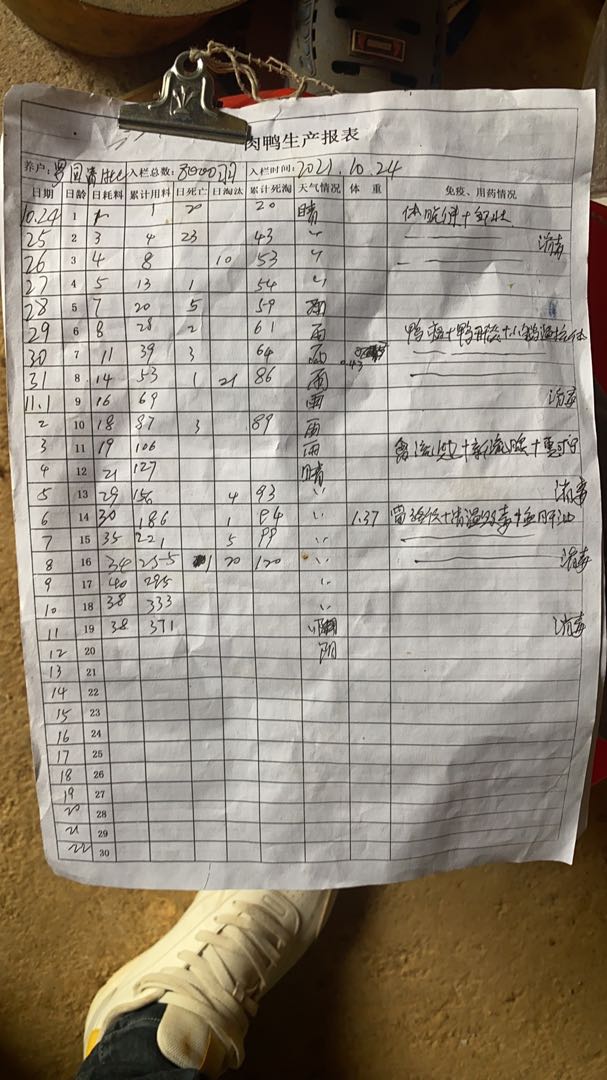 肉鸭生产报表
养户: 入栏总数: 入栏时间: 2021.10.24
日期 日龄 日耗料 累计用料 日死亡 日淘汰 累计死淘 天气情况 体 重 免疫、用药情况
10.24 1 1 20 20 晴
25 2 3 4 23 43 〃 消毒
26 3 4 8 10 53 〃
27 4 5 13 1 54 〃
28 5 7 20 5 59 雨
29 6 8 28 2 61 雨
30 7 11 39 3 64 雨 0.43
31 8 14 53 1 21 86 雨
11.1 9 16 69 雨 消毒
2 10 18 87 3 89 雨
3 11 19 106 雨
4 12 21 127 晴
5 13 29 156 4 93 〃 消毒
6 14 30 186 1 94 〃 1.37
7 15 35 221 5 99 〃
8 16 34 255 1 20 120 〃 消毒
9 17 40 295 〃
10 18 38 333 〃
11 19 38 371 〃 消毒
12 20 阴
13 21
14 22
15 23
16 24
17 25
18 26
19 27
20 28
21 29
22 30